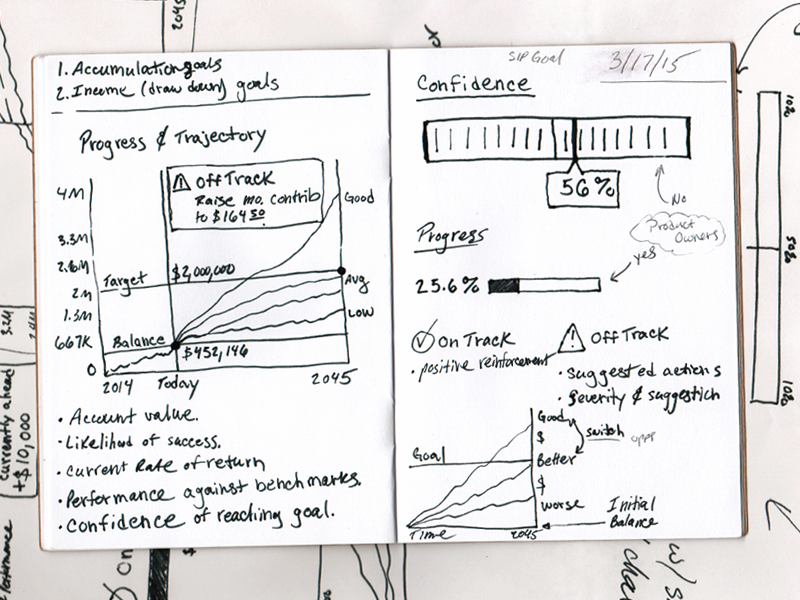 1. Accumulation goals
2. Income (draw down) goals
Progress & Trajectory
4M
3.3M
2.6M
2M
1.3M
667K
0
⚠ Off Track
Raise mo. contrib
to $164 50
Good
Target
$2,000,000
Avg
Low
Balance
$452,146
2014
Today
2045
• Account value.
• Likelihood of success.
• Current Rate of return
• Performance against benchmarks.
• Confidence of reaching goal.
SIP Goal
3/17/15
Confidence
56%
No
Product
Owners
yes
Progress
25.6%
On Track
• positive reinforcement
Off Track
• Suggested actions
• Severity & suggestion
Good
$
switch
Goal
Better
$
worse
Initial
Balance
Time
2045
2045
currently ahead
+$10,000
3.2M
on
10%
50%
w/